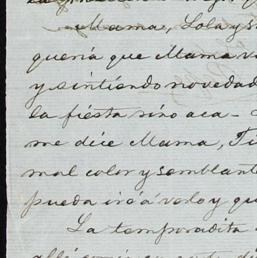 Mama, Lola y s
queria que Mama v
y sintiendo novedad
la fiesta sino aca -
me dice Mama, Ti
mal color y semblant
pueda ir á verlo y qu
La temporadita